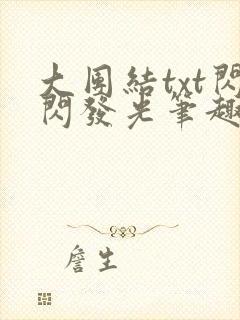 大團結txt閃
閃發光筆趣
詹生